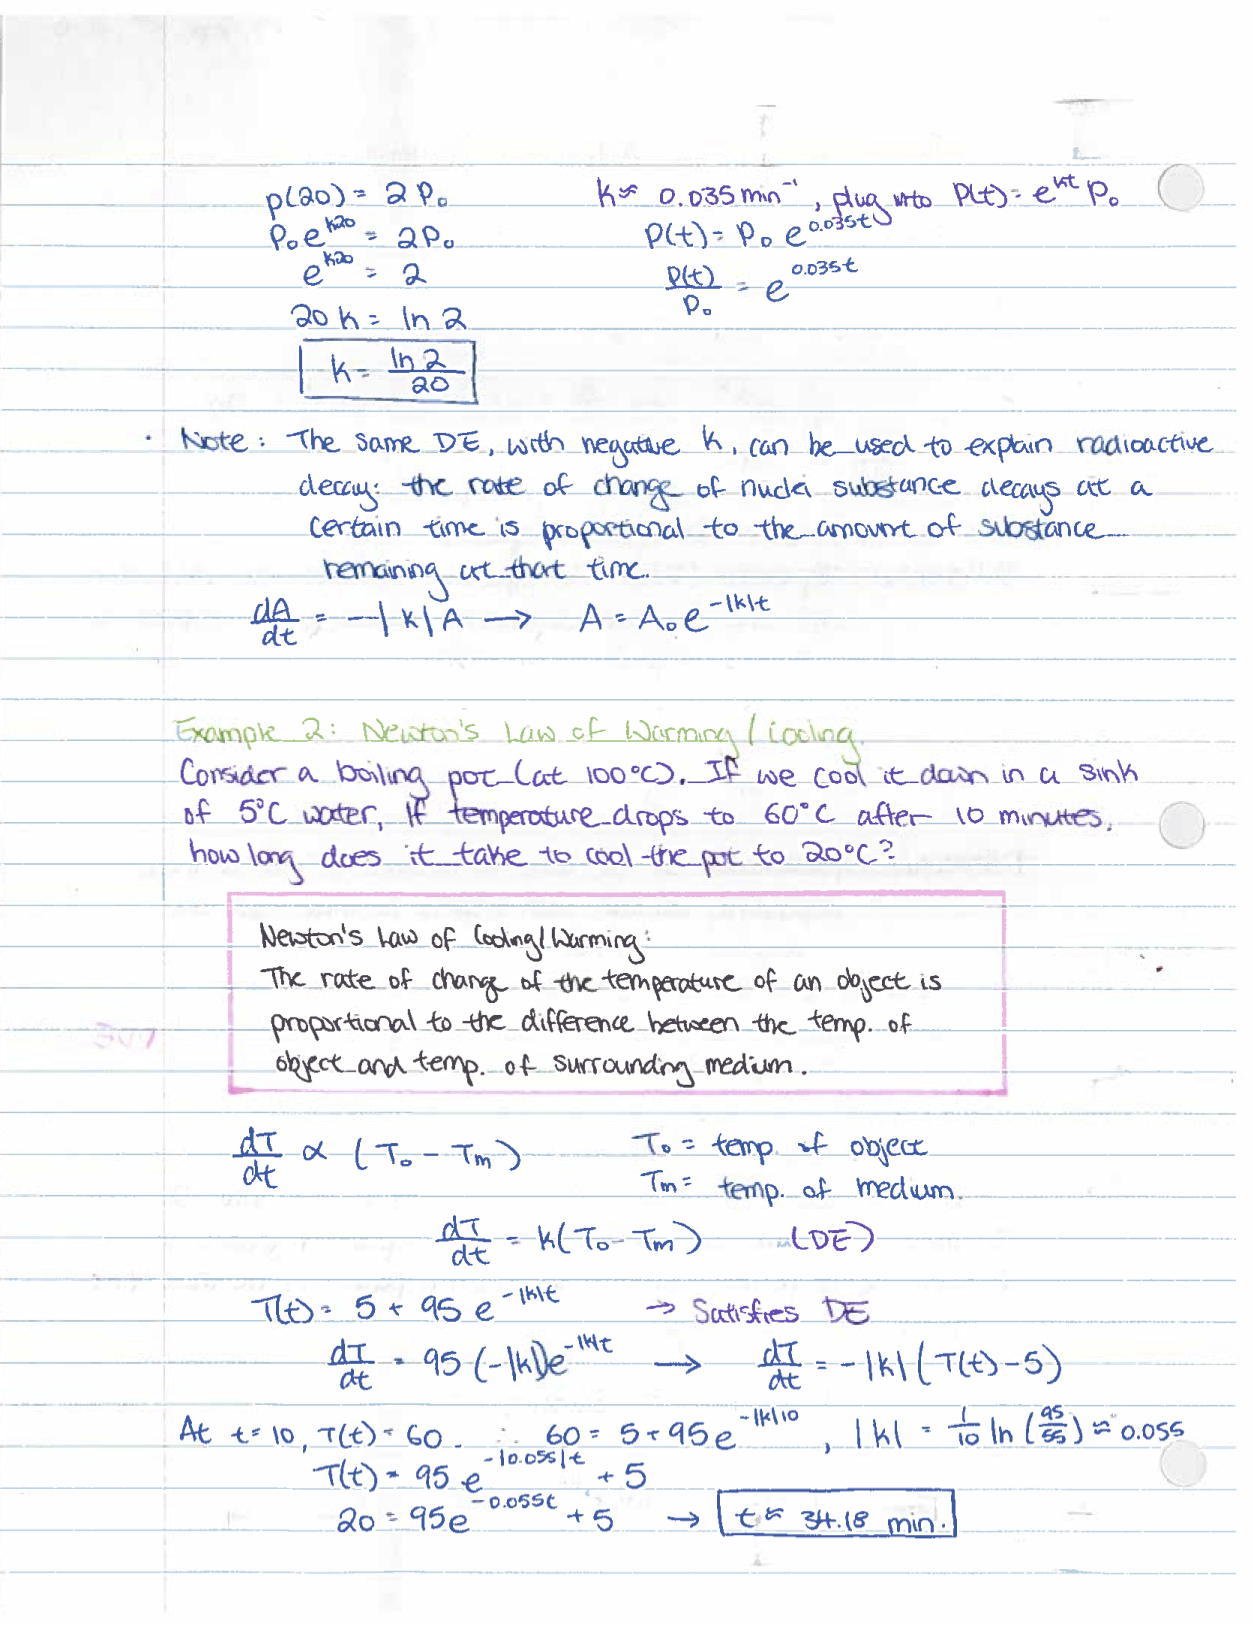 p(20) = 2 P₀
P₀e^k20 = 2P₀
e^k20 = 2
20 k = ln 2
k = ln 2 / 20
k ≈ 0.035 min⁻¹, plug into P(t) = e^kt P₀
P(t) = P₀ e^0.035t
P(t)/P₀ = e^0.035t
· Note: The same DE, with negative k, can be used to explain radioactive
decay: the rate of change of nuclei substance decays at a
certain time is proportional to the amount of substance
remaining at that time.
dA/dt = -|k|A → A = A₀e^-|k|t
Example 2: Newton's Law of Warming / Cooling.
Consider a boiling pot (at 100°C). If we cool it down in a sink
of 5°C water, If temperature drops to 60°C after 10 minutes,
how long does it take to cool the pot to 20°C?
Newton's Law of Cooling/Warming:
The rate of change of the temperature of an object is
proportional to the difference between the temp. of
object and temp. of surrounding medium.
dT/dt ∝ (T₀ - Tm) T₀ = temp. of object
Tm = temp. of medium.
dT/dt = k(T₀ - Tm) (DE)
T(t) = 5 + 95 e^-|k|t → Satisfies DE
dT/dt = 95 (-|k|)e^-|k|t → dT/dt = -|k| (T(t) - 5)
At t = 10, T(t) = 60. ∴ 60 = 5 + 95e^-|k|10, |k| = 1/10 ln (95/55) ≈ 0.055
T(t) = 95 e^-|0.055|t + 5
20 = 95e^-0.055t + 5 → t ≈ 34.18 min.